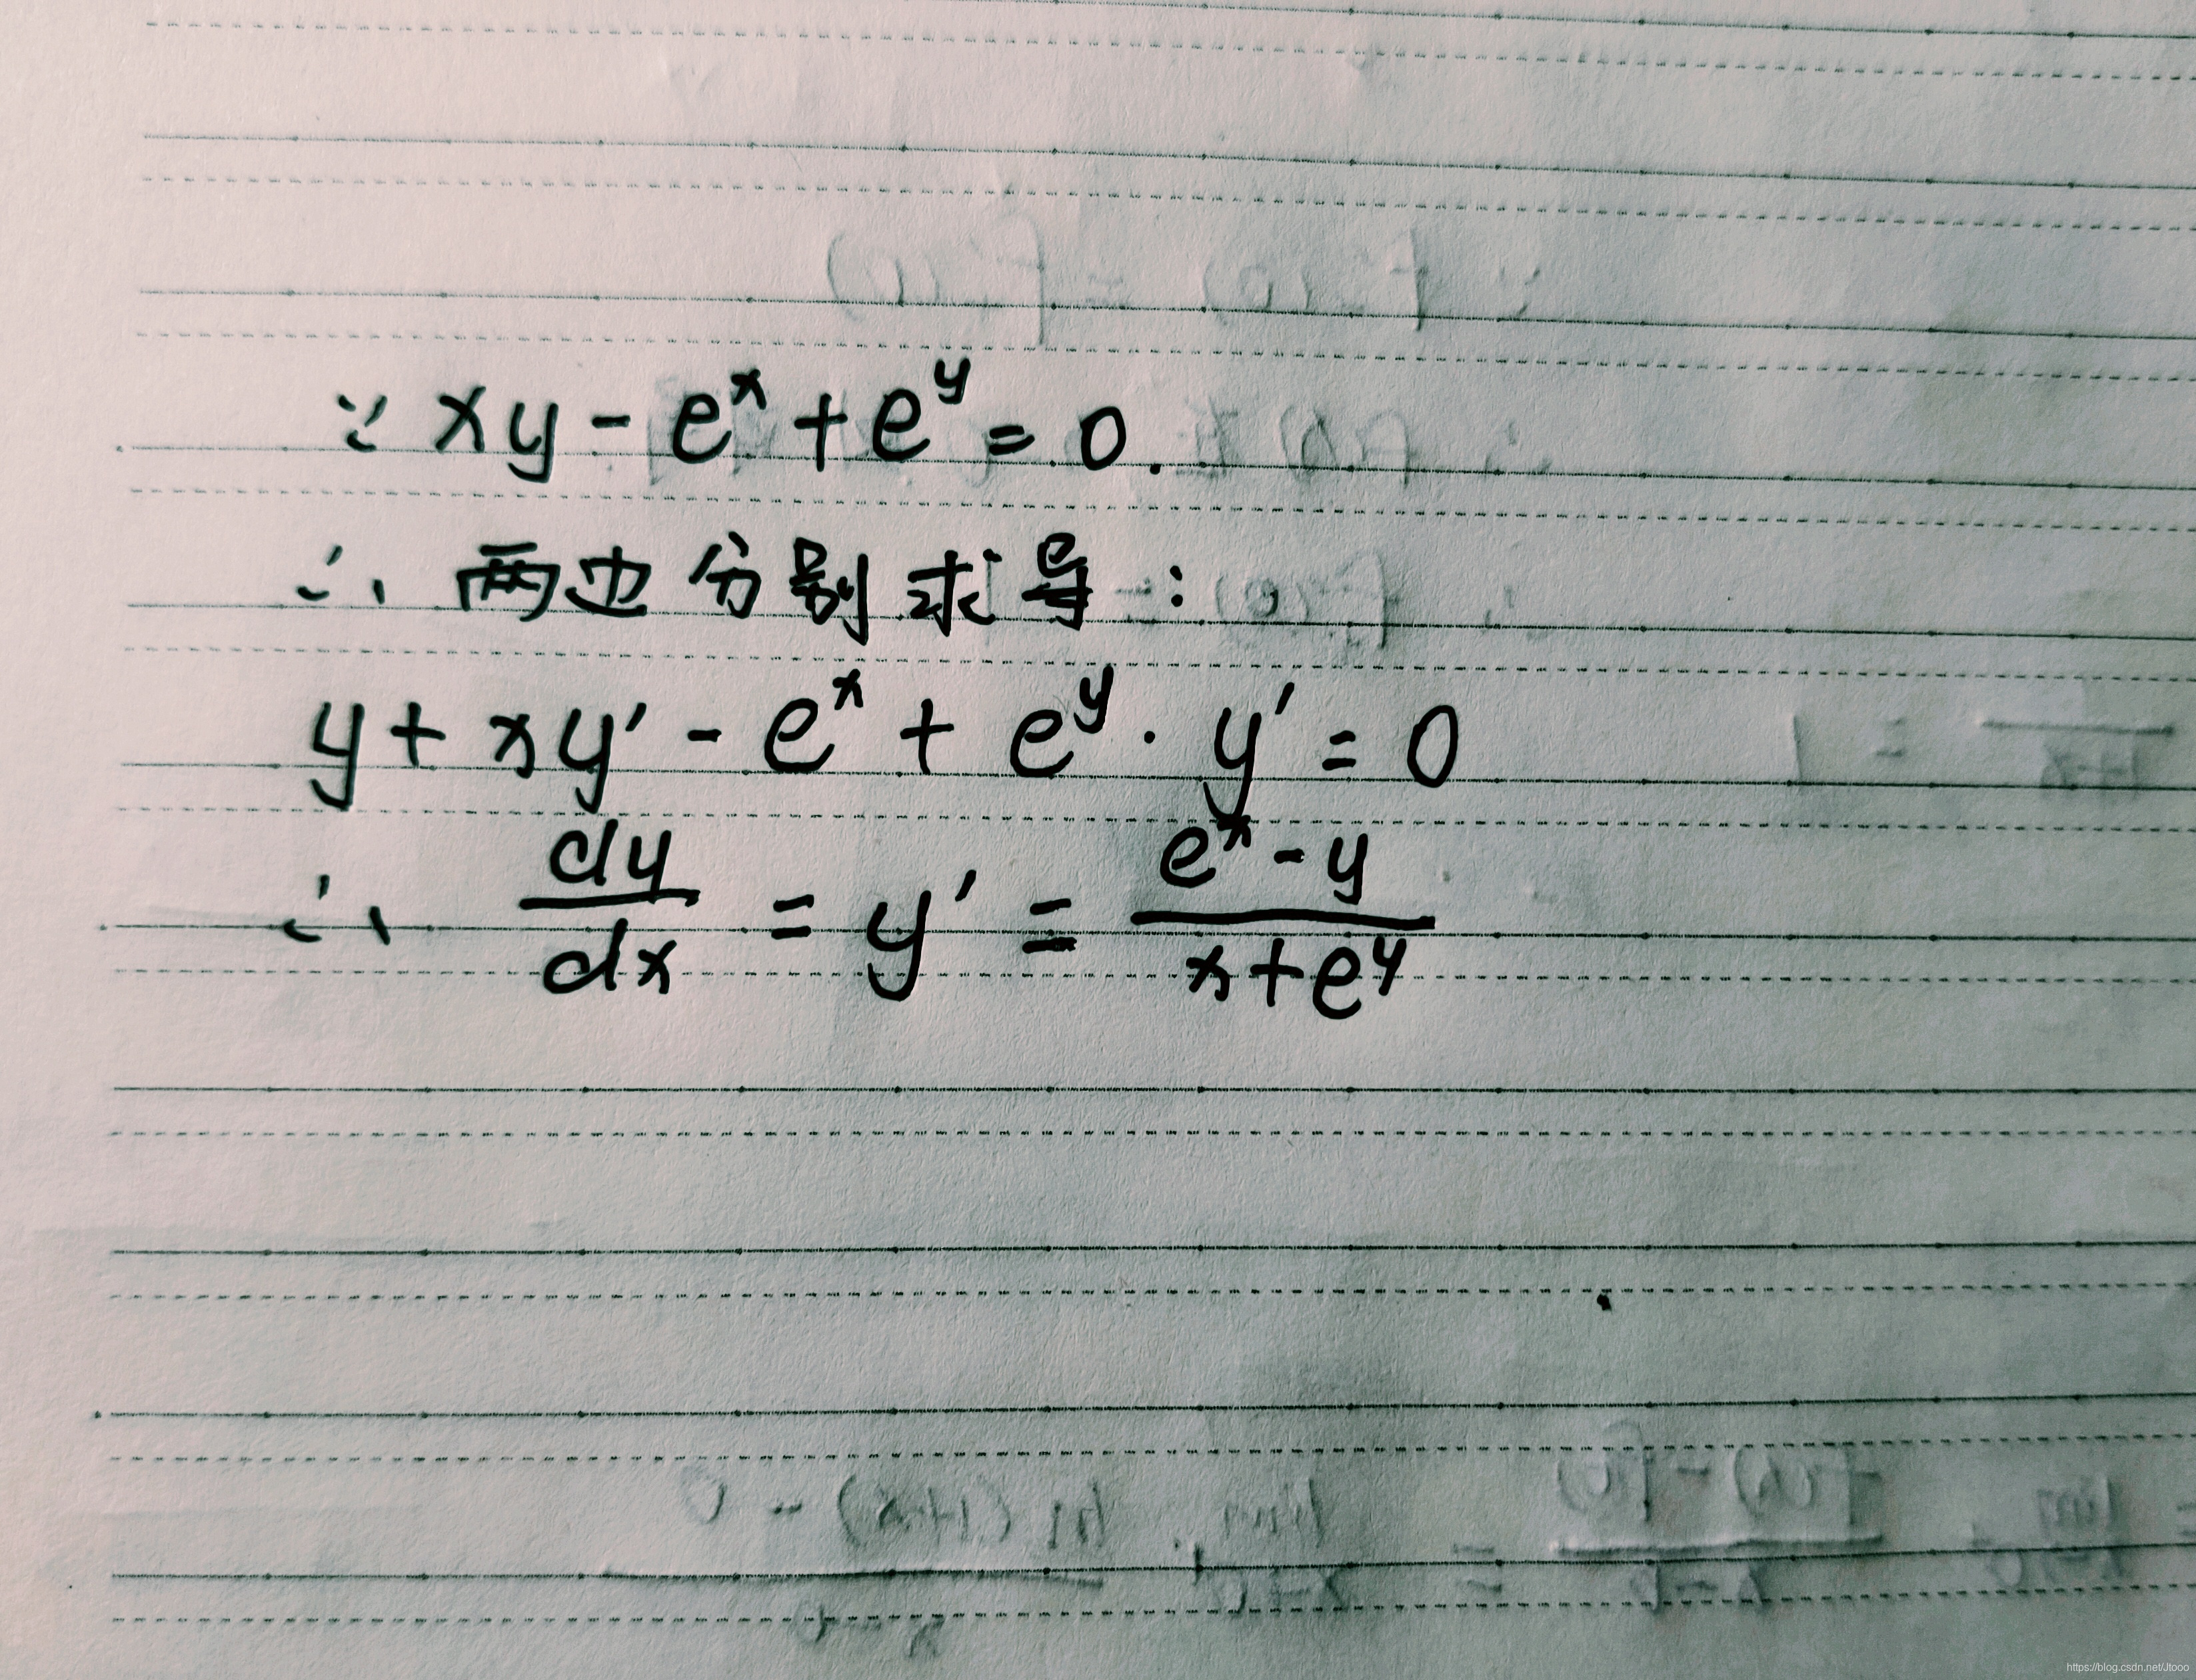 ∵ xy - e^x + e^y = 0.
∴ 两边分别求导:
y + xy' - e^x + e^y · y' = 0
∴ dy/dx = y' = (e^x - y)/(x + e^y)
https://blog.csdn.net/Jtooo